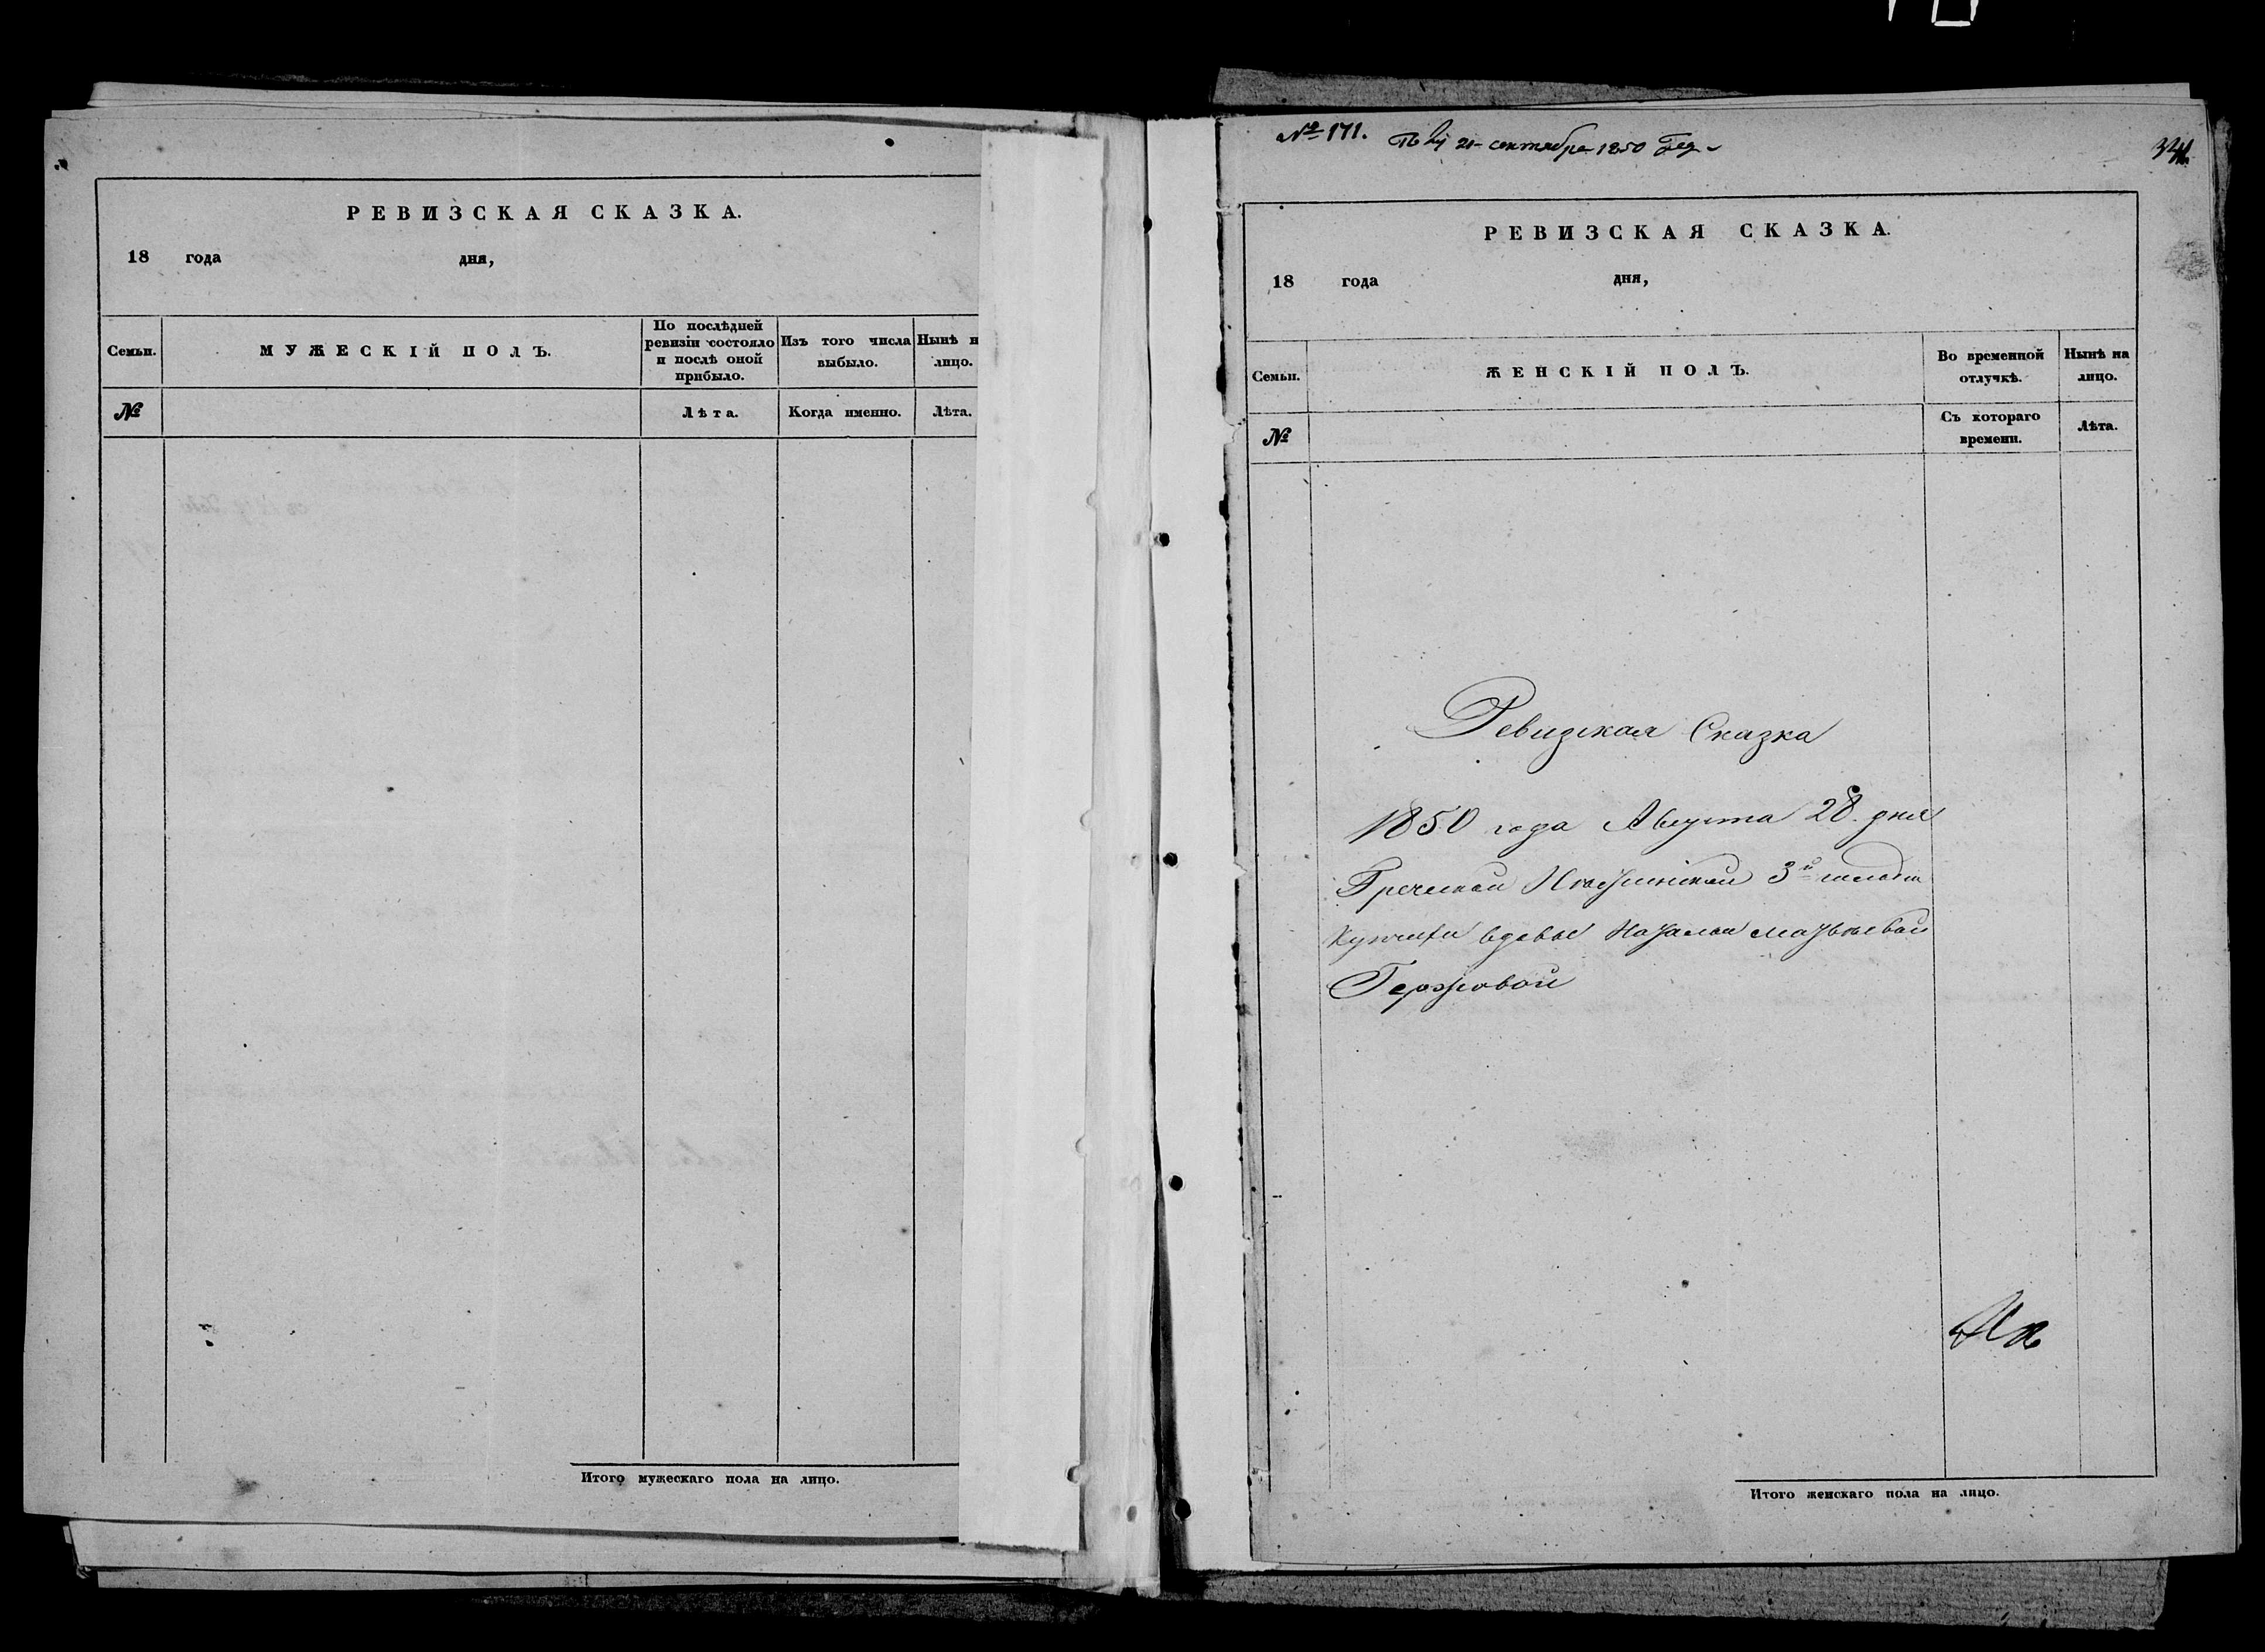 РЕВИЗСКАЯ СКАЗКА.
18 года дня,
Семьи.
МУЖЕСКІЙ ПОЛЪ.
По послѣдней ревизіи состояло и послѣ оной прибыло.
Изъ того числа выбыло.
Нынѣ н
лицо.
№
Лѣта.
Когда именно.
Лѣта.
Итого мужескаго пола на лицо.
№ 171.
21 сентября 1850
РЕВИЗСКАЯ СКАЗКА.
18 года дня,
Семьи.
ЖЕНСКІЙ ПОЛЪ.
Во временной отлучкѣ.
Нынѣ на лицо.
№
Съ котораго времени.
Лѣта.
Ревизская Сказка
1850 года Августа 28. дня
Греческой Нѣжинской 3й гильдіи
Купчихи вдовы Наталіи Матвѣевой
Итого женскаго пола на лицо.